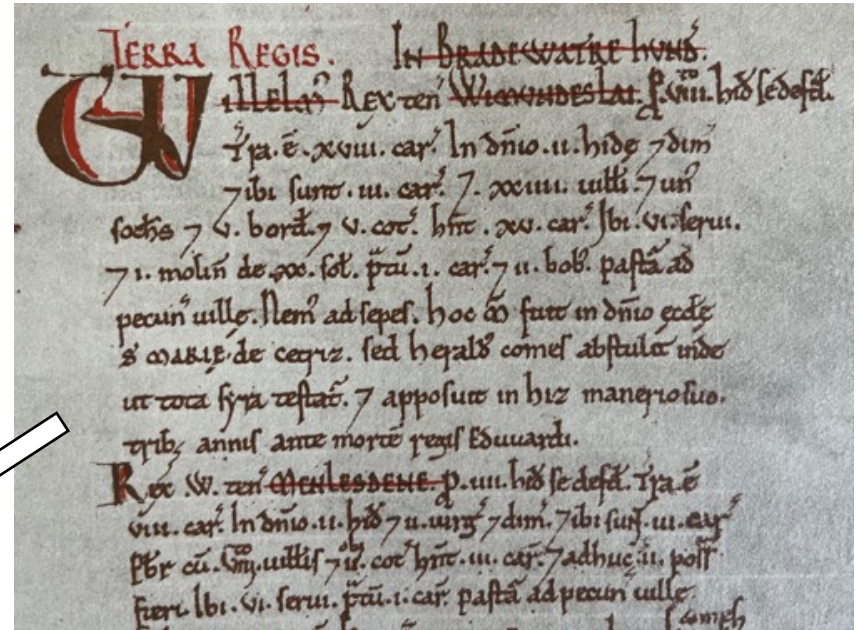 TERRA REGIS. IN BRADEWATRE HVND̄.
WILLELM̄ Rex ten̄ WIMVNDESLAI. ꝑ. viii. hid̄ se defd̄.
T̄ra. ē. xviii. car̄. In dn̄io. ii. hidę ⁊ dim̄
⁊ ibi sunt. iii. car̄. ⁊. xxiiii. uilłi. ⁊ un̄
soch̄s ⁊ v. bord̄. ⁊ v. cot̄. hn̄t. xv. car̄. Ibi. vi. serui.
⁊ i. molin̄ de. xx. sol̄. p̄tū. i. car̄. ⁊ ii. bob̄. pastā ad
pecun̄ uillę. Nem̄ ad sepes. hoc m̄ fuit in dn̄io ęccłę
S̄ MARIE. de cetriz. sed herald̄ comes abstulit inde
ut tota syra testat̄. ⁊ apposuit in hiz manerio suo.
trib; annis ante mortē regis Eduuardi.
Rex .W. ten̄ MENLESDENE. ꝑ. iiii. hid̄ se defd̄. T̄ra ē
viii. car̄. In dn̄io. ii. hid̄ ⁊ ii. uirḡ ⁊ dim̄. ⁊ ibi sun̄t. iii. car̄
Pb̄r cū. viii. uilłis ⁊ ii. cot̄ hn̄t. iii. car̄. ⁊ adhuc. ii. poss̄
fieri. Ibi. vi. serui. p̄tū. i. car̄. pastā ad pecun̄ uillę.